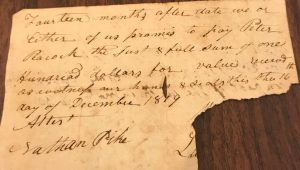 Fourteen months after date we or
Either of us promis to pay Peter
Pacock the Just & full Sum of one
hundried Dollars for value recevd
as witness our hands & seals this the 16
day of December 1819
Attest
Nathan Pike